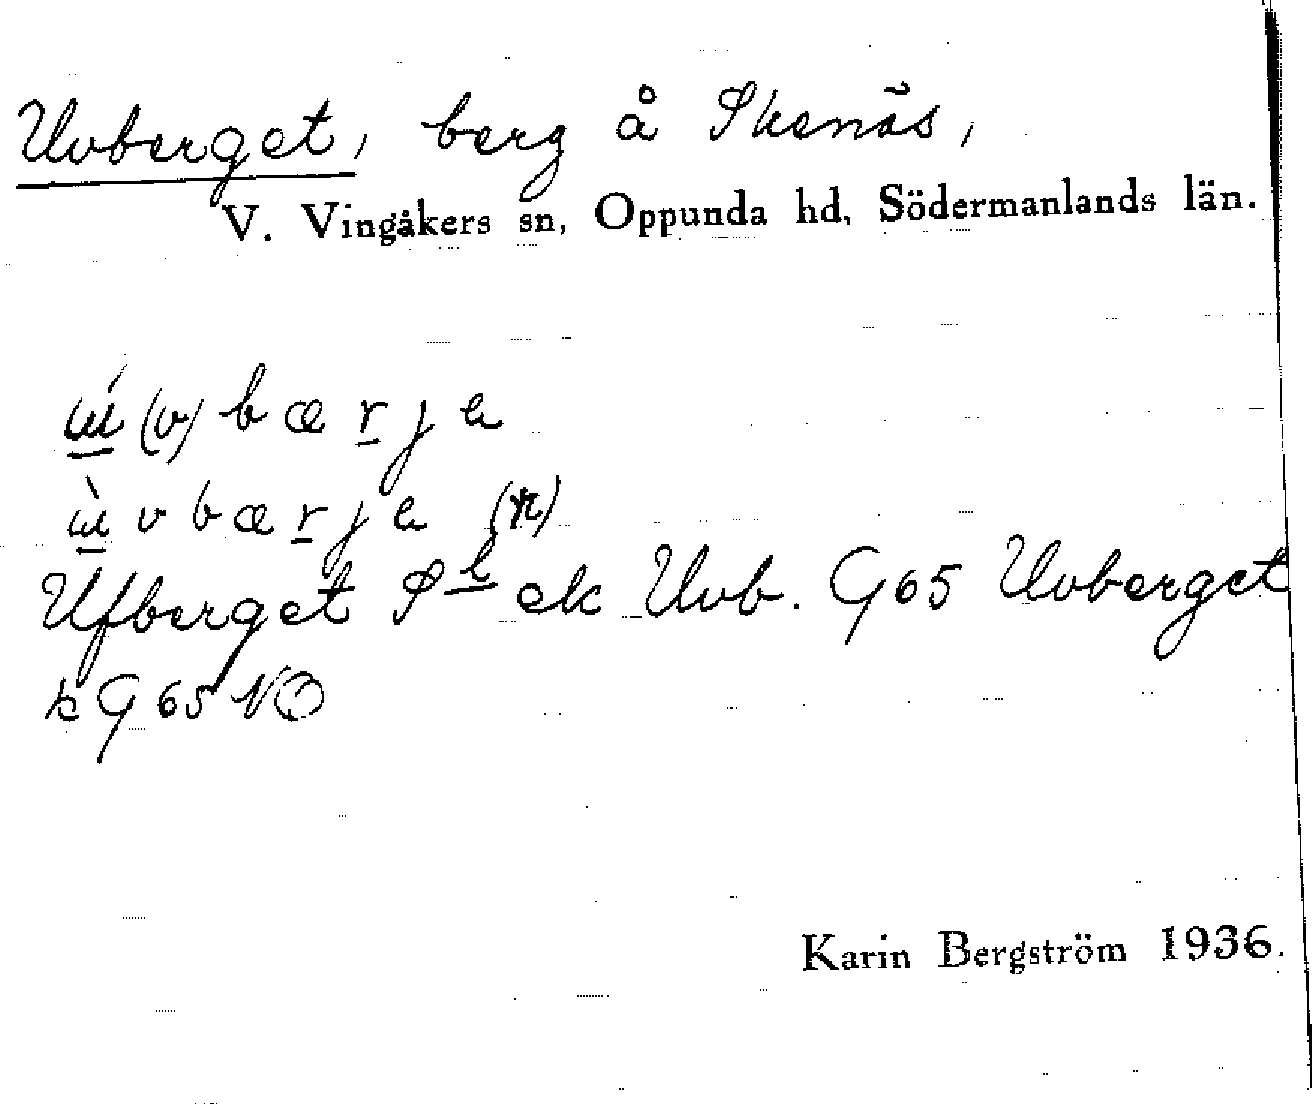 Uvberget, berg å Skenäs,
V. Vingåkers sn, Oppunda hd, Södermanlands län.
ɯ́(v)bærjə
ɯ̀vbærjə (n)
Ufberget Sk ek Uvb. G65 Uvberget
k G65 NO
Karin Bergström 1936.